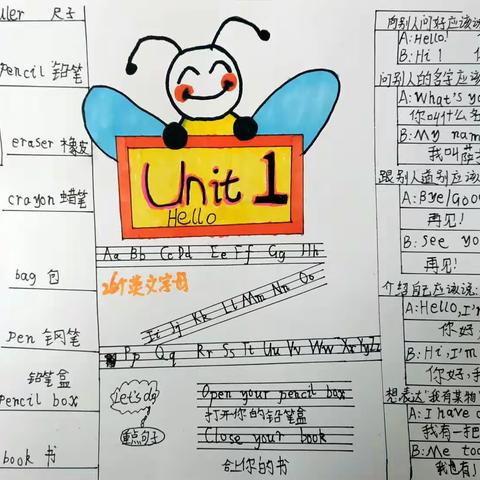 uler 尺子
pencil 铅笔
eraser 橡皮
crayon 蜡笔
bag 包
pen 钢笔
铅笔盒
Pencil box
book 书
Unit 1
Hello
Aa Bb Cc Dd Ee Ff Gg Hh
26个英文字母
Ii Jj Kk Ll Mm Nn Oo
Pp Qq Rr Ss Tt Uu Vv Ww Xx Yy Zz
Let's do
重点句子
Open your pencil box
打开你的铅笔盒
Close your book
合上你的书
向别人问好应该说
A: Hello!
B: Hi!
问别人的名字应该
A: What's yo
你叫什么名
B: My nam
我叫萨
跟别人道别应该
A: Bye/Goo
再见!
B: See yo
再见!
介绍自己应该说:
A: Hello, I'm
你好,
B: Hi, I'm
你好,我
想表达"我有某物"
A: I have
我有一把
B: Me too
我也有